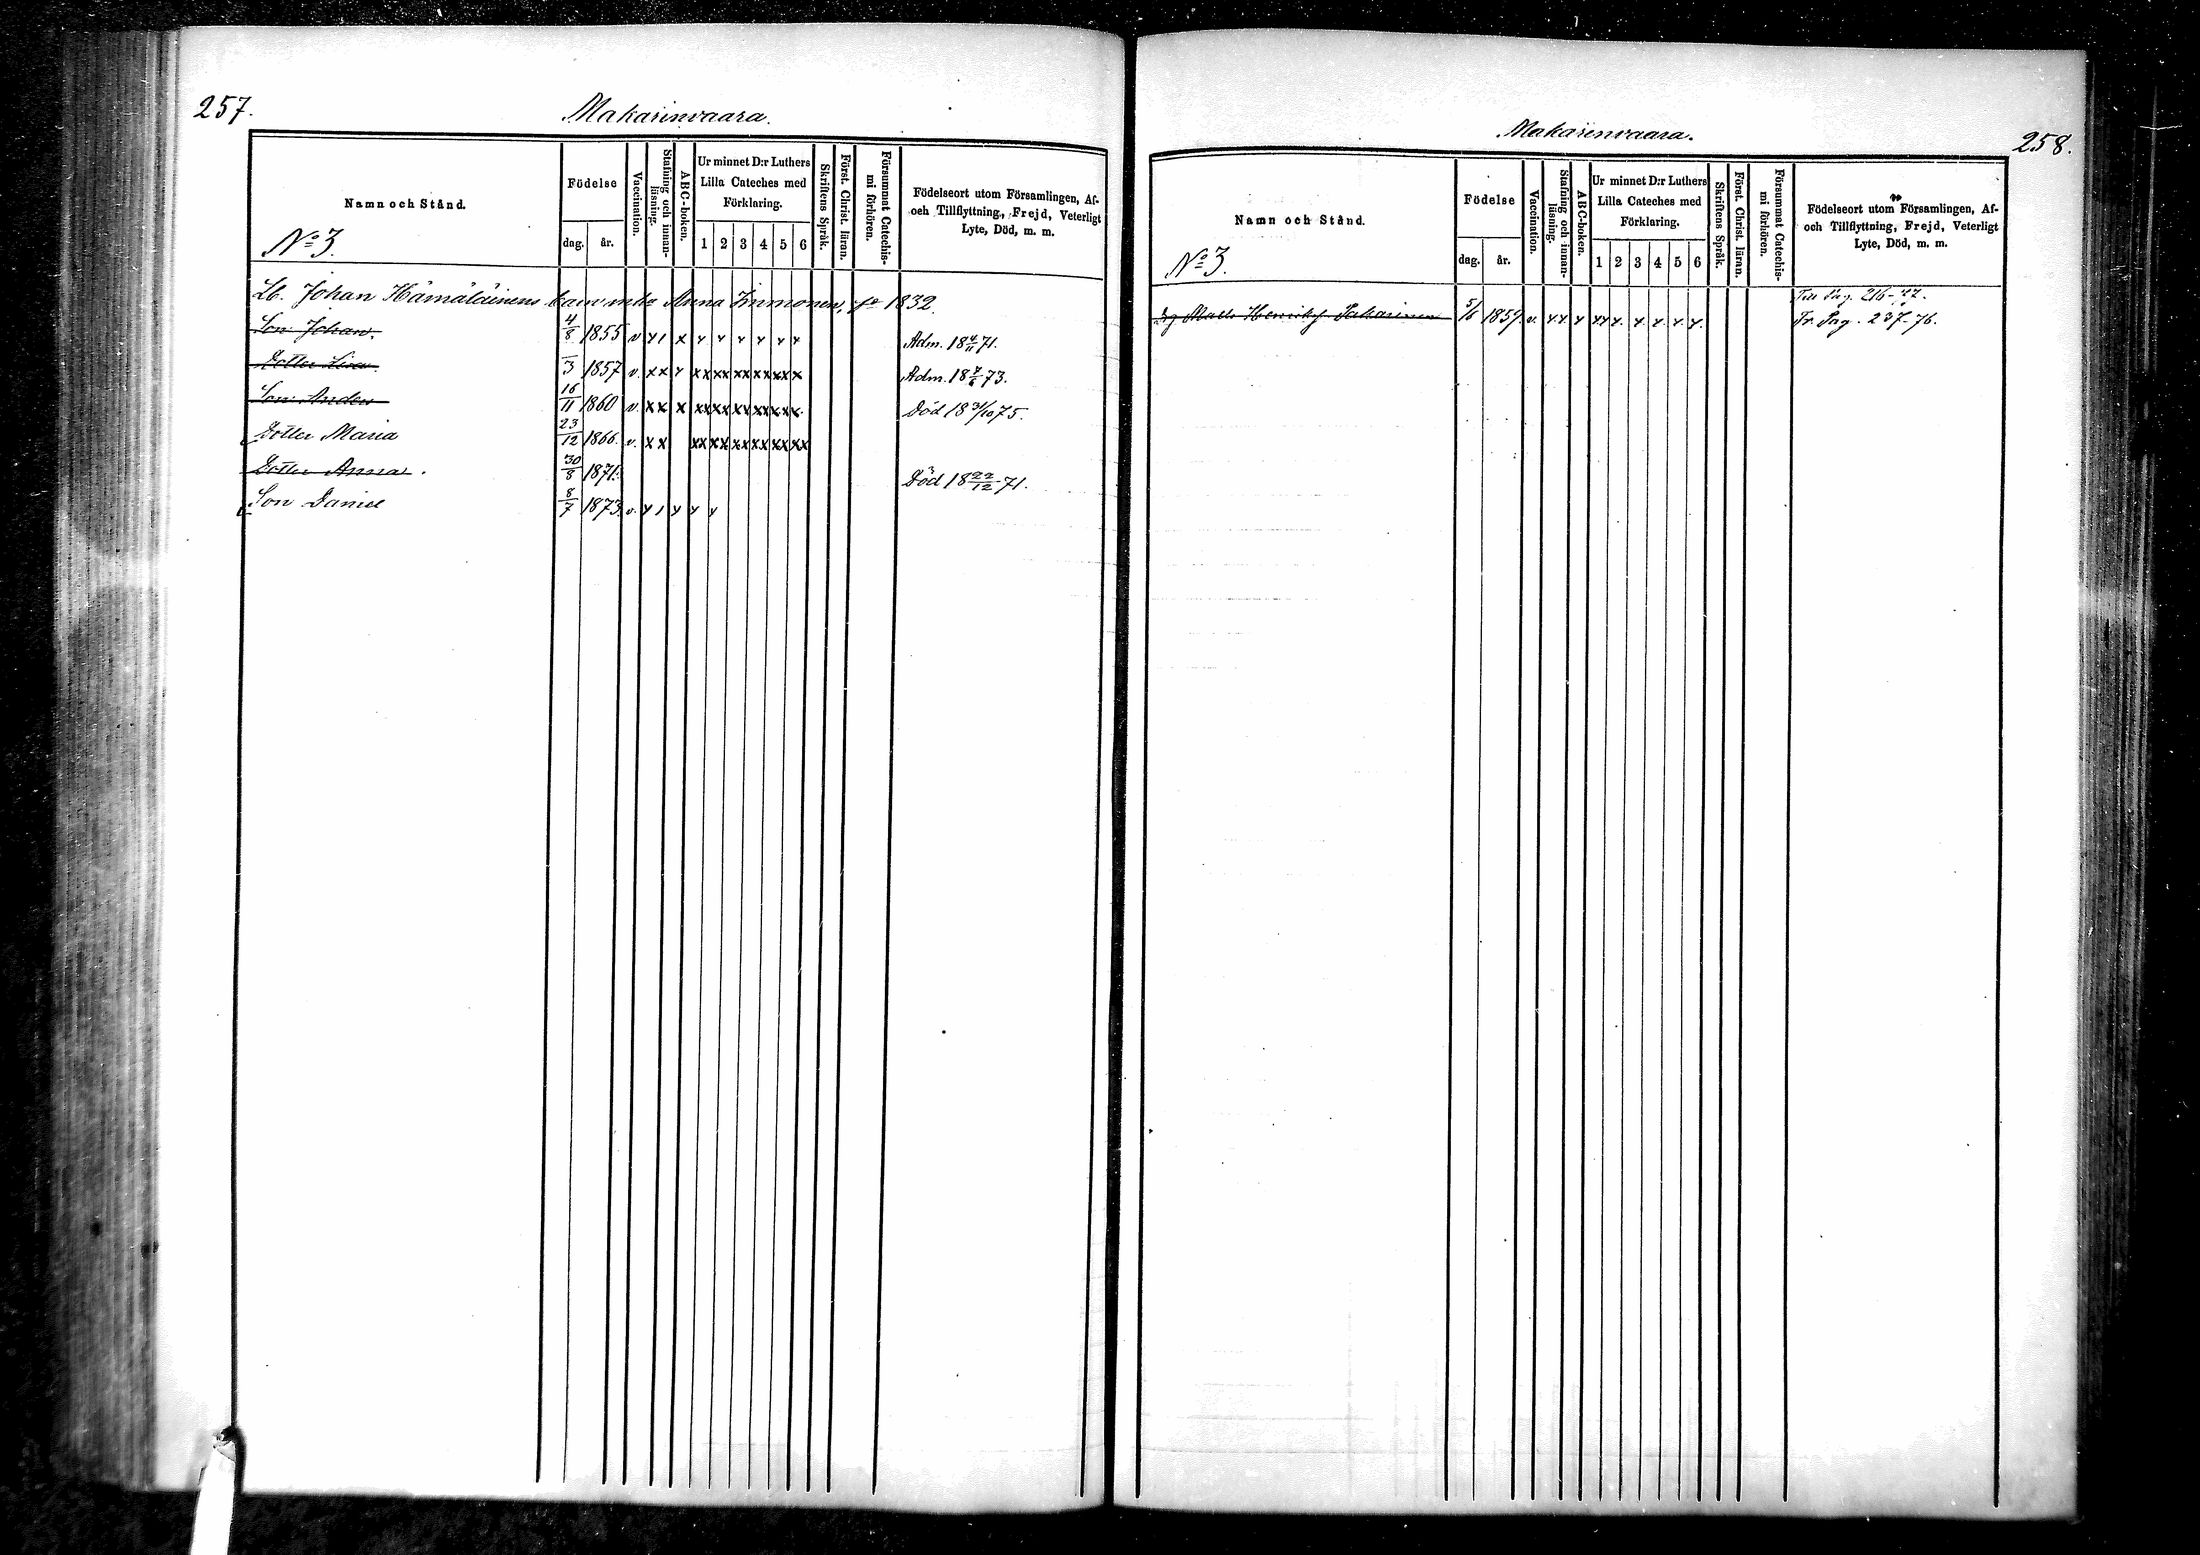 257.
Makarinvaara.
Namn och Stånd.
Födelse
dag. år.
Vaccination.
Stafning och innan-
läsning.
ABC-boken.
Ur minnet D:r Luthers
Lilla Cateches med
Förklaring.
1 2 3 4 5 6
Skriftens Språk.
Först. Christ. läran.
Försummat Catechis-
mi förhören.
Födelseort utom Församlingen, Af-
och Tillflyttning, Frejd, Veterligt
Lyte, Död, m. m.
No 3.
Lb. Johan Hämäläinens barn m. Anna Immonen, fo 1832.
Son Johan. 4/8 1855 v x 1 x x x x x x x Adm. 18 4/11 71.
Dotter Lisa 3 1857 v. x x x xx xx xx xx xx x Adm. 18 73.
Son Anders 16/11 1860 v. x x x xx xx xx xx xx x Död 18 31/10 75.
Dotter Maria 23/12 1866. v. x x xx xx xx xx xx xx
Dotter Anna. 30/8 1871. Död 18 22/12 71.
Son Daniel 8/7 1873. v. x 1 x x x
Makarenvaara.
258.
Namn och Stånd.
Födelse
dag. år.
Vaccination.
Stafning och innan-
läsning.
ABC-boken.
Ur minnet D:r Luthers
Lilla Cateches med
Förklaring.
1 2 3 4 5 6
Skriftens Språk.
Först. Christ. läran.
Försummat Catechis-
mi förhören.
Födelseort utom Församlingen, Af-
och Tillflyttning, Frejd, Veterligt
Lyte, Död, m. m.
No 3.
Till Pag. 216-77.
Matts Henriksf Pakarinen 5/6 1859. v. x x x x x x. x x x x. Fr. Pag. 237-76.